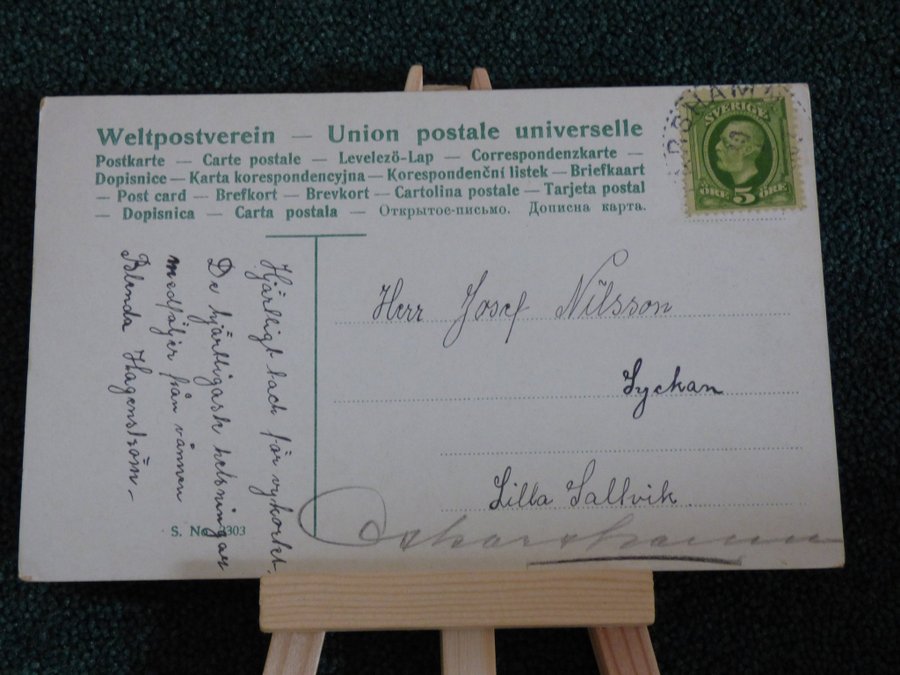 Weltpostverein — Union postale universelle
Postkarte — Carte postale — Levelező-Lap — Correspondenzkarte —
Dopisnice — Karta korespondencyjna — Korespondenční listek — Briefkaart
— Post card — Brefkort — Brevkort — Cartolina postale — Tarjeta postal
— Dopisnica — Carta postala — Открытое-письмо. Дописна карта.
SVERIGE
ÖRE 5 ÖRE
Hjärtligt tack för vykortet.
De hjärtligaste helsningar
medföljer från vännen
Blenda Hagenström –
Herr Josef Nilsson
Lyckan
Lilla Saltvik
Oskarshamn
S. No.